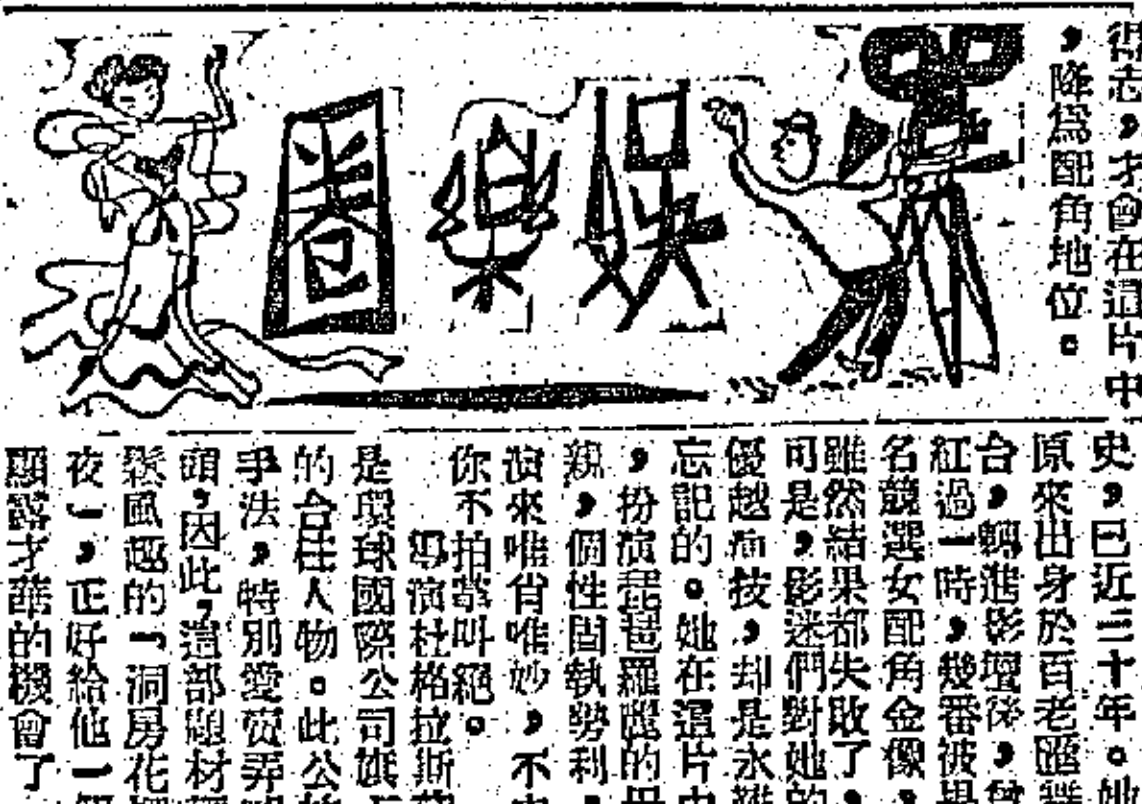 得志,才會在這片中
,降為配角地位。
娛樂圈
史,已近三十年。她
原來出身於百老匯舞
台,轉進影壇後,曾
紅過一時,幾番被舉
名競選女配角金像,
雖然結果都失敗了,
可是,影迷們對她的
優越演技,却是永難
忘記的。她在這片中
,扮演琵琶羅麗的母
親,個性固執勢利,
演來唯肖唯妙,不由
你不拍案叫絕。
導演杜格拉斯
是環球國際公司旗
的台柱人物。此公
手法,特別愛賣弄
頭,因此,這部題材
鬆風趣的「洞房花
夜」,正好給他一個
顯露才華的機會了